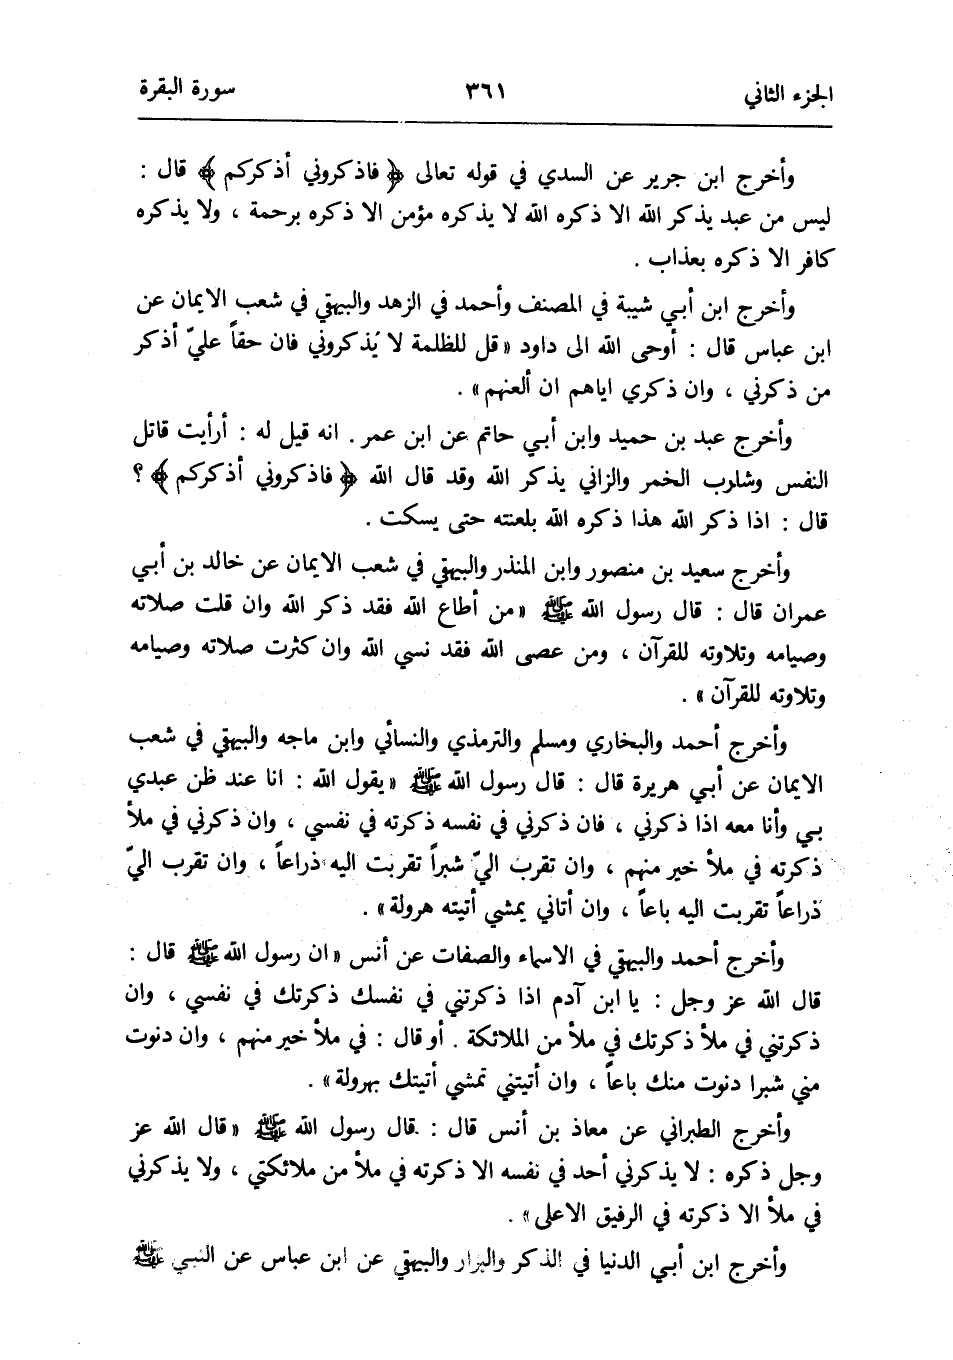 الجزء الثاني ٣٦١ سورة البقرة
وأخرج ابن جرير عن السدي في قوله تعالى ﴿ فاذكروني أذكركم ﴾ قال :
ليس من عبد يذكر الله الا ذكره الله لا يذكره مؤمن الا ذكره برحمة ، ولا يذكره
كافر الا ذكره بعذاب .
وأخرج ابن أبي شيبة في المصنف وأحمد في الزهد والبيهقي في شعب الايمان عن
ابن عباس قال : أوحى الله الى داود « قل للظلمة لا يُذكروني فان حقاً عليّ أذكر
من ذكرني ، وان ذكري اياهم ان ألعنهم » .
وأخرج عبد بن حميد وابن أبي حاتم عن ابن عمر . انه قيل له : أرأيت قاتل
النفس وشلوب الخمر والزاني يذكر الله وقد قال الله ﴿ فاذكروني أذكركم ﴾ ؟
قال : اذا ذكر الله هذا ذكره الله بلعنته حتى يسكت .
وأخرج سعيد بن منصور وابن المنذر والبيهقي في شعب الايمان عن خالد بن أبي
عمران قال : قال رسول الله ﷺ « من أطاع الله فقد ذكر الله وان قلت صلاته
وصيامه وتلاوته للقرآن ، ومن عصى الله فقد نسي الله وان كثرت صلاته وصيامه
وتلاوته للقرآن » .
وأخرج أحمد والبخاري ومسلم والترمذي والنسائي وابن ماجه والبيهقي في شعب
الايمان عن أبي هريرة قال : قال رسول الله ﷺ « يقول الله : انا عند ظن عبدي
بي وأنا معه اذا ذكرني ، فان ذكرني في نفسه ذكرته في نفسي ، وان ذكرني في ملأ
ذكرته في ملأ خير منهم ، وان تقرب اليّ شبراً تقربت اليه ذراعاً ، وان تقرب اليّ
ذراعاً تقربت اليه باعاً ، وان أتاني يمشي أتيته هرولة » .
وأخرج أحمد والبيهقي في الاسماء والصفات عن أنس « ان رسول الله ﷺ قال :
قال الله عز وجل : يا ابن آدم اذا ذكرتني في نفسك ذكرتك في نفسي ، وان
ذكرتني في ملأ ذكرتك في ملأ من الملائكة . أو قال : في ملأ خير منهم ، وان دنوت
مني شبرا دنوت منك باعاً ، وان أتيتني تمشي أتيتك بهرولة » .
وأخرج الطبراني عن معاذ بن أنس قال : قال رسول الله ﷺ « قال الله عز
وجل ذكره : لا يذكرني أحد في نفسه الا ذكرته في ملأ من ملائكتي ، ولا يذكرني
في ملأ الا ذكرته في الرفيق الاعلى » .
وأخرج ابن أبي الدنيا في الذكر والبزار والبيهقي عن ابن عباس عن النبي ﷺ